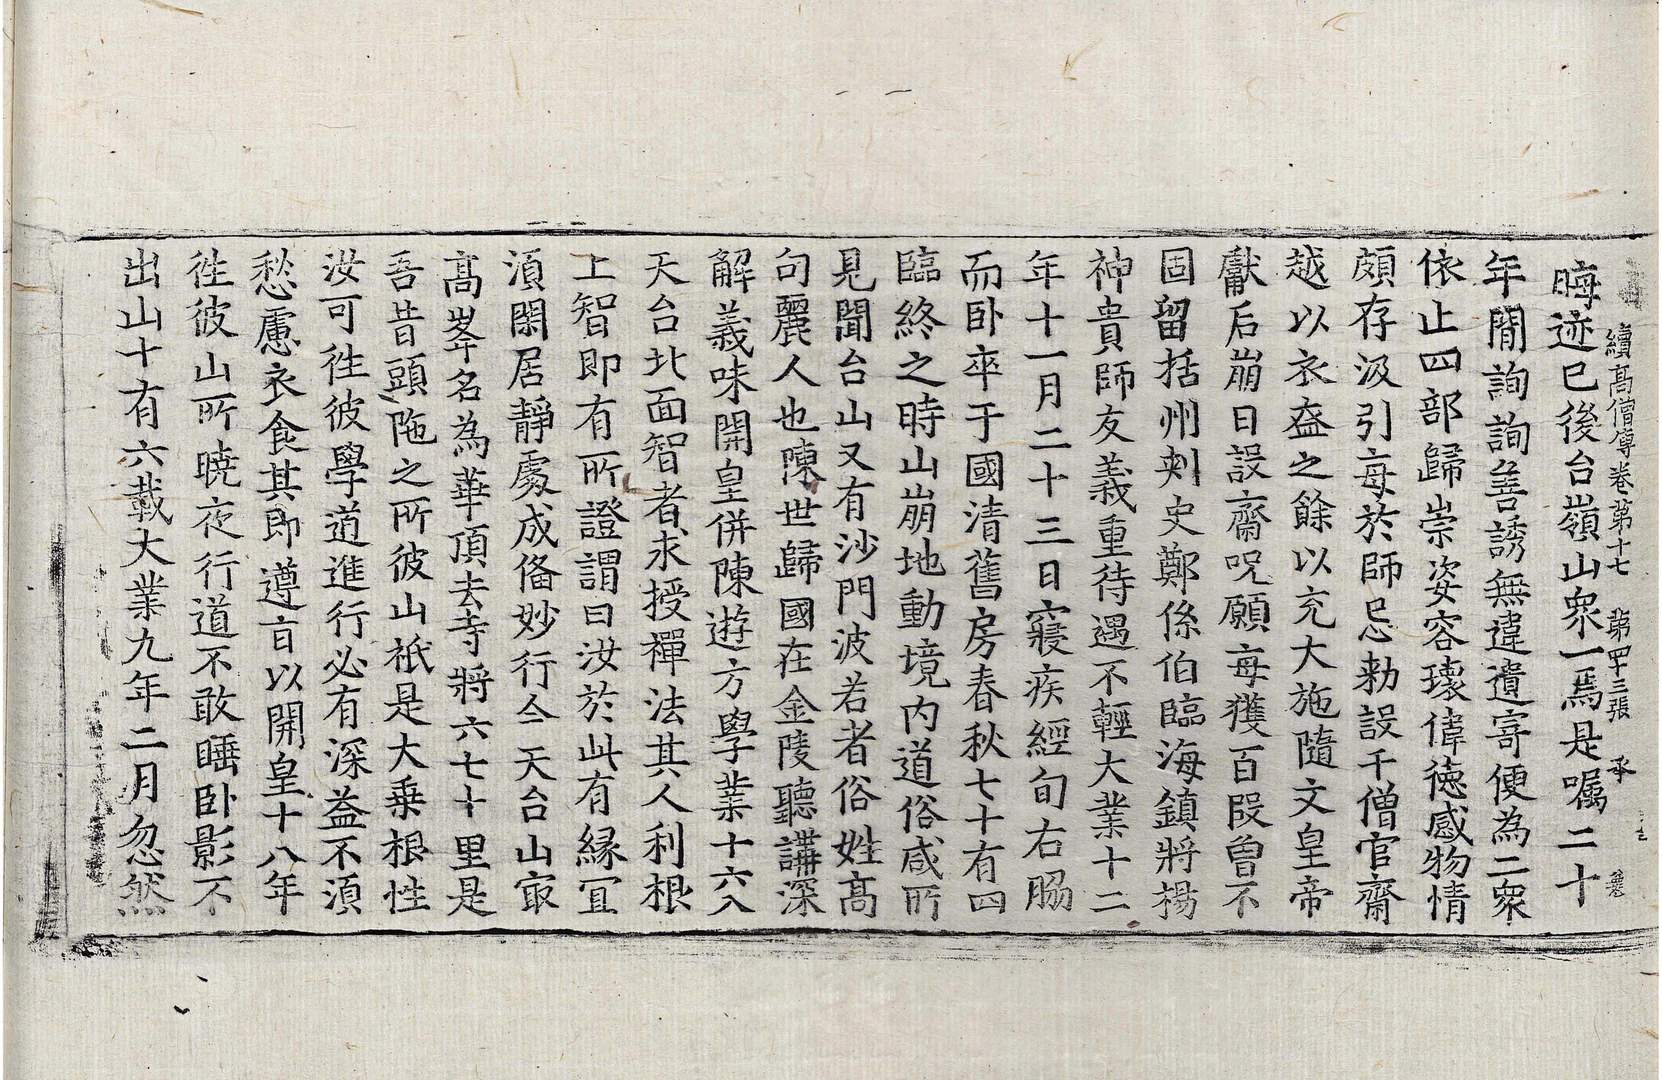 續高僧傳卷第十七 第四十三張 承
晦迹已後台嶺山衆一焉是囑二十
年閒詢詢善誘無違遺寄便為二衆
依止四部歸崇姿容瓌偉德感物情
頗存汲引每於師忌勑設千僧官齋
越以衣盔之餘以充大施隨文皇帝
獻后崩日設齋呪願每獲百段曾不
固留括州刾史鄭係伯臨海鎮將楊
神貴師友義重待遇不輕大業十二
年十一月二十三日寢疾經旬右脇
而卧卒于國清舊房春秋七十有四
臨終之時山崩地動境内道俗咸所
見聞台山又有沙門波若者俗姓髙
句麗人也陳世歸國在金陵聽講深
解義味開皇併陳遊方學業十六入
天台北面智者求授禪法其人利根
上智即有所證謂曰汝於此有縁冝
湏閑居靜處成俻妙行今天台山㝡
髙峯名為華頂去寺將六七十里是
吾昔頭陁之所彼山祇是大乗根性
汝可往彼學道進行必有深益不湏
愁慮衣食其即遵言以開皇十八年
往彼山所曉夜行道不敢睡卧影不
出山十有六載大業九年二月忽然